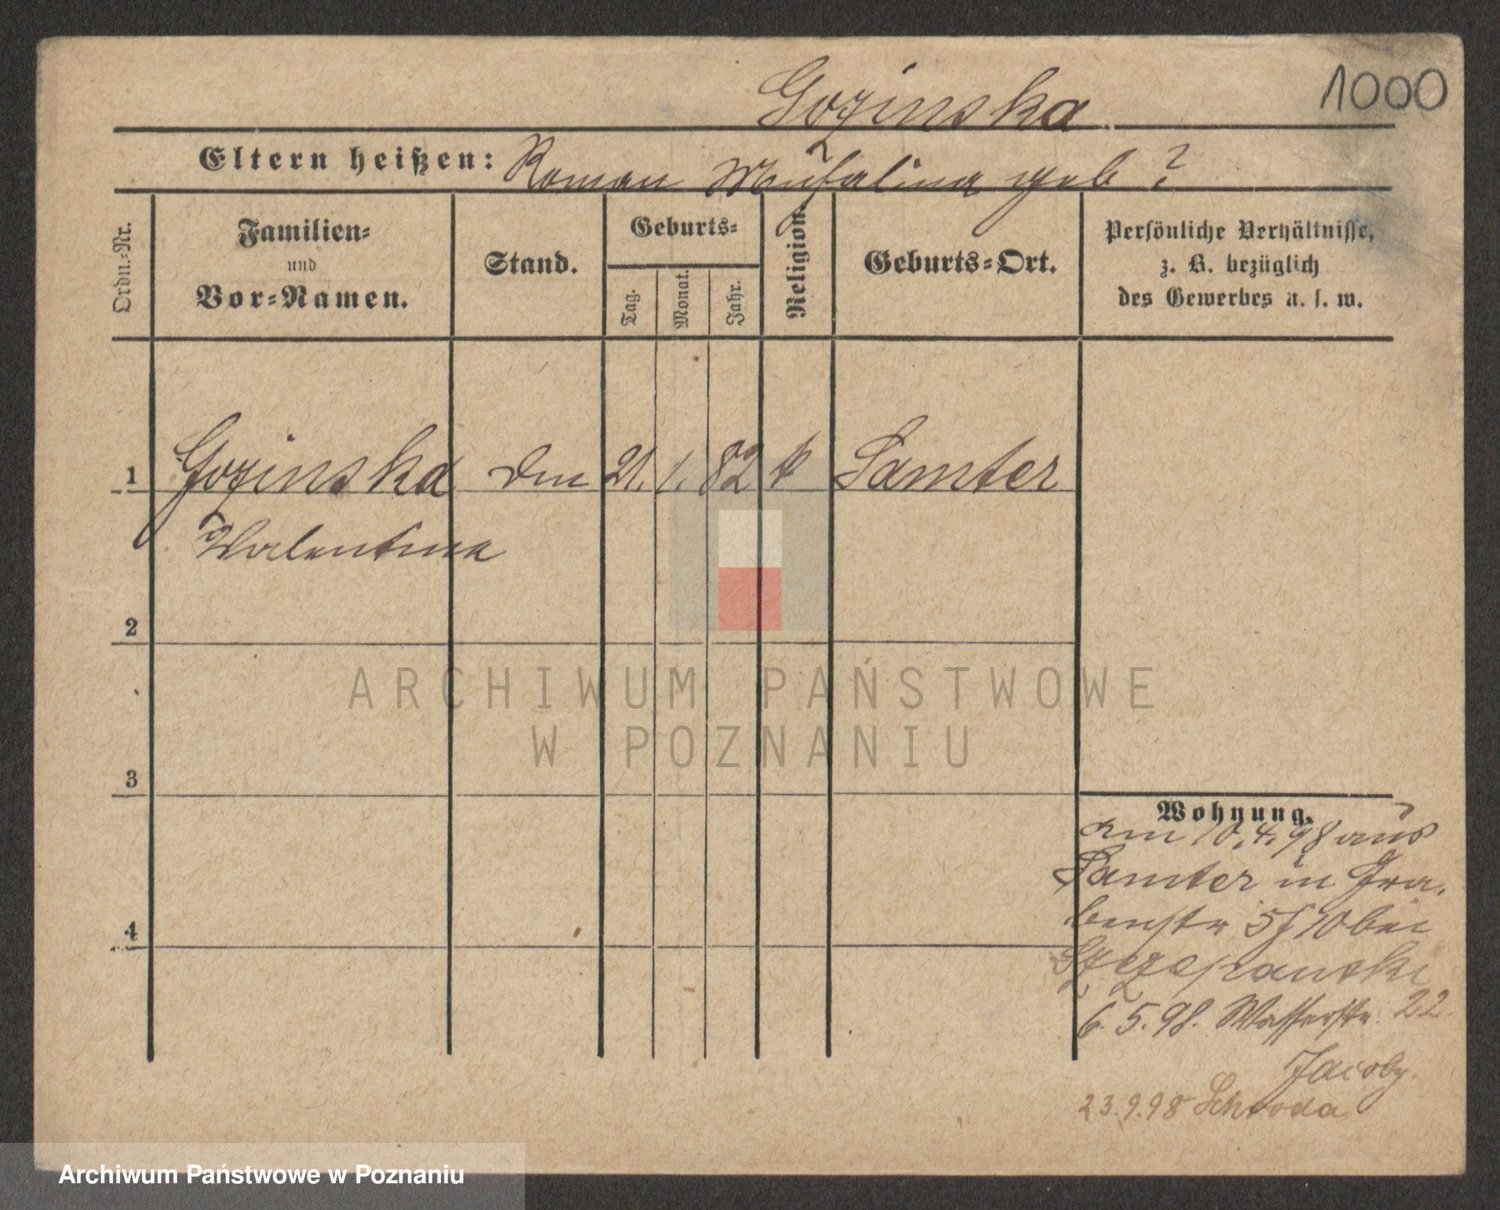 1000
Gozinska
Eltern heißen: Roman Michalina geb ?
Ordn.-Nr.
Familien-
und
Vor-Namen.
Stand.
Geburts-
Tag.
Monat.
Jahr.
Religion.
Geburts-Ort.
Persönliche Verhältnisse,
z. B. bezüglich
des Gewerbes u. s. w.
1 Gozinska 21. 1. 82 k Samter
Valentina
2
3
4
ARCHIWUM PAŃSTWOWE
W POZNANIU
Wohnung.
am 10.4.98 aus
Samter in Gra-
benstr 5 10 bei
Szczepanski
6.5.98. Wasserstr. 22
Jacoby.
23.9.98 Schroda
Archiwum Państwowe w Poznaniu